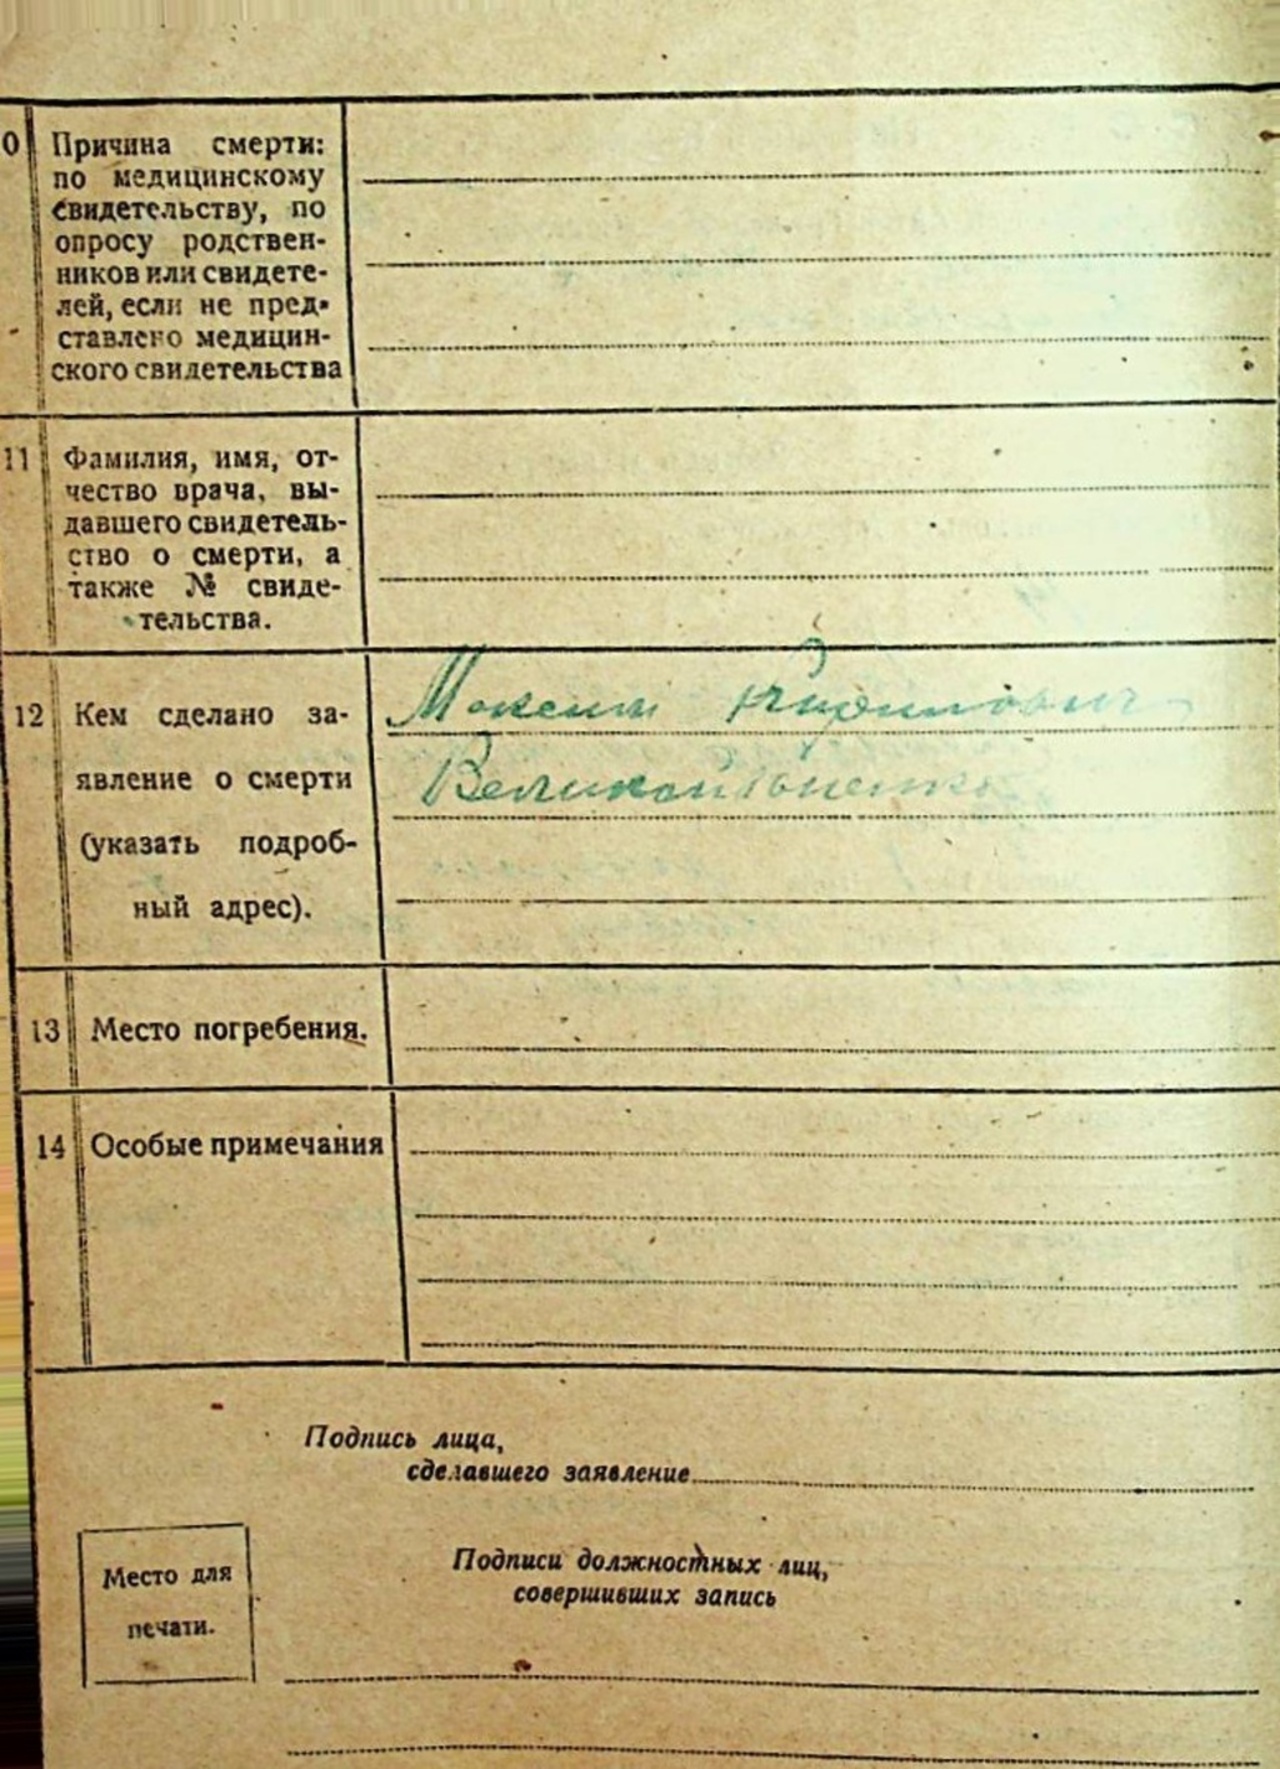 0 Причина смерти:
по медицинскому
свидетельству, по
опросу родствен-
ников или свидете-
лей, если не пред-
ставлено медицин-
ского свидетельства
11 Фамилия, имя, от-
чество врача, вы-
давшего свидетель-
ство о смерти, а
также № свиде-
тельства.
Максим
12 Кем сделано за-
явление о смерти
(указать подроб-
ный адрес).
13 Место погребения.
14 Особые примечания
Подпись лица,
сделавшего заявление
Место для
печати.
Подписи должностных лиц,
совершивших запись